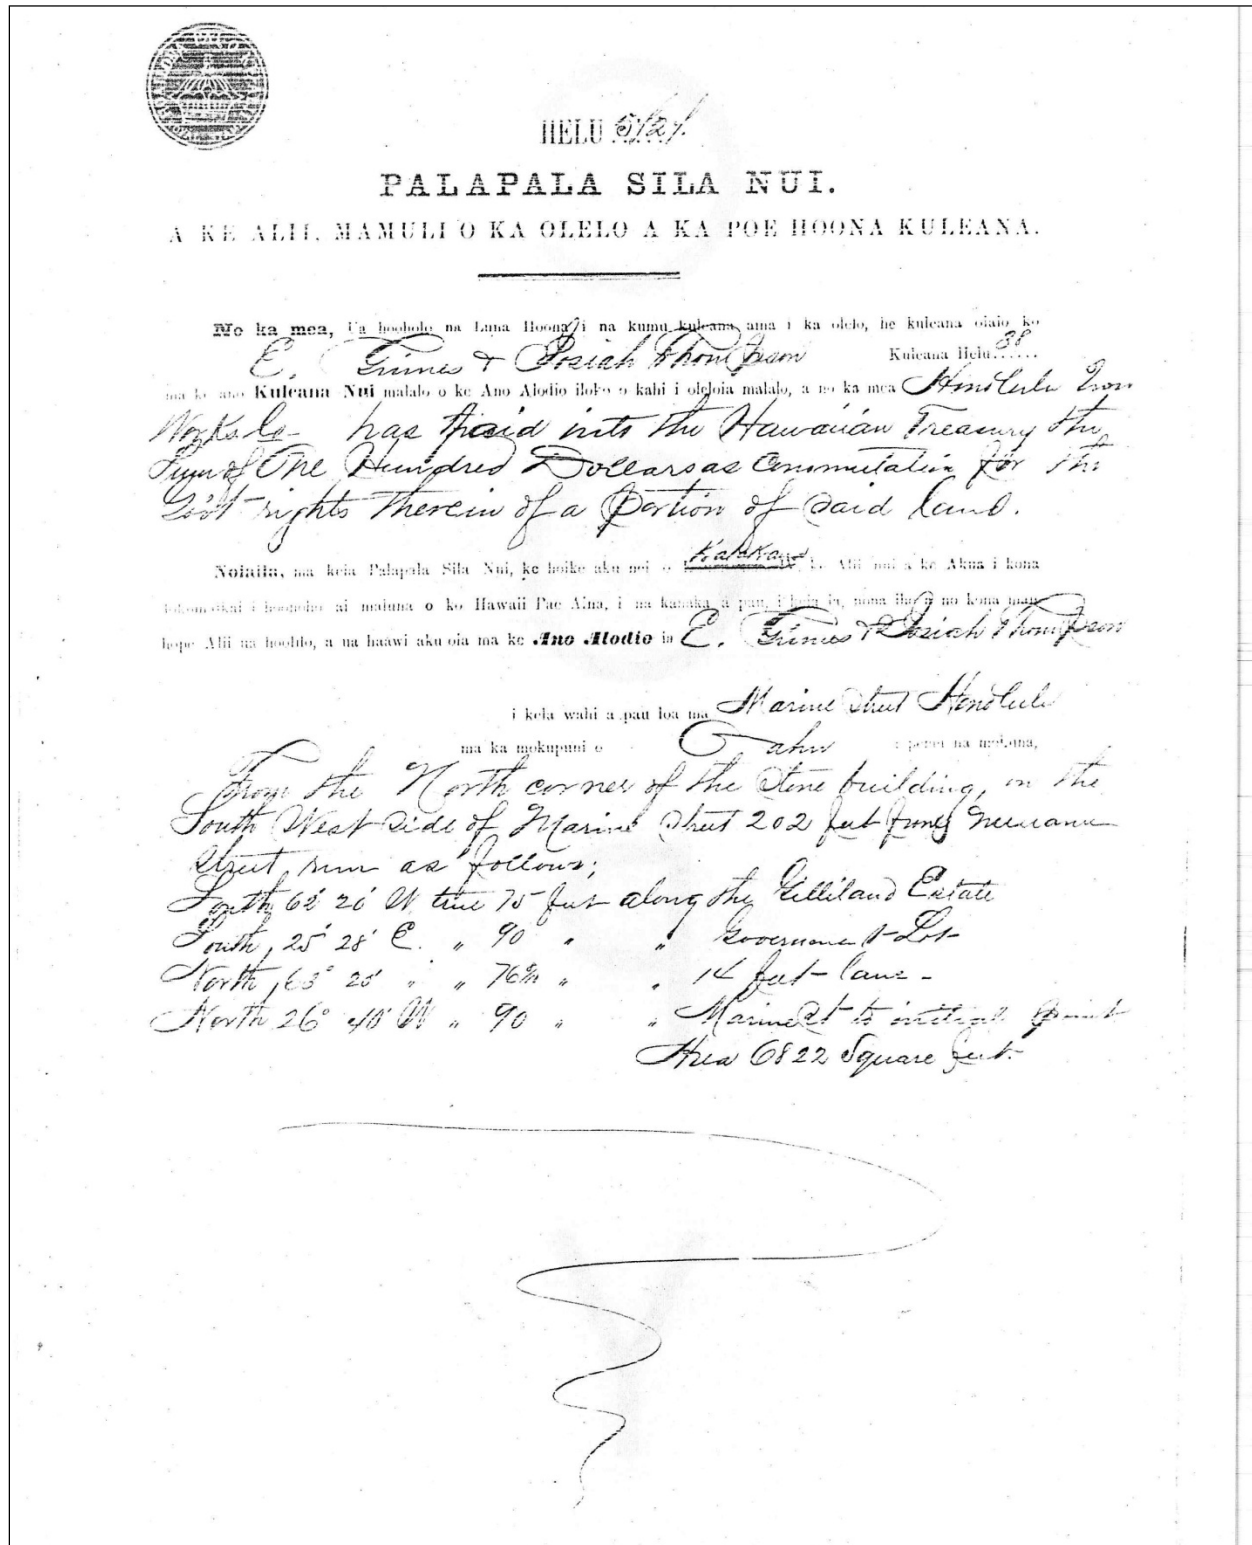 HELU
PALAPALA SILA NUI.
A KE ALII, MAMULI O KA OLELO A KA POE HOONA KULEANA.
No ka mea, Ua hooholo na Luna Hoona i na kumu kuleana aina i ka olelo, he kuleana oiaio ko
E. Grimes & Josiah Thompson Kuleana Helu 38
ma ke ano Kuleana Nui malalo o ke Ano Alodio iloko o kahi i oleloia malalo, a no ka mea Honolulu Iron
Works Co has paid into the Hawaiian Treasury the
Sum of One Hundred Dollars as Commutation for the
Gov't rights therein of a portion of said land.
Nolaila, ma keia Palapala Sila Nui, ke hoike aku nei o Kalakaua ke Alii nui a ke Akua i kona
lokomaikai i hoonoho ai maluna o ko Hawaii Pae Aina, i na kanaka a pau, i keia la, nona iho a no kona mau
hope Alii ua hooholo, a ua haawi aku oia ma ke Ano Alodio ia E. Grimes & Josiah Thompson
i kela wahi a pau loa ma Marine Street Honolulu
ma ka mokupuni o Oahu i penei na mokuna,
From the North corner of the Stone building, on the
South West side of Marine Street 202 feet from Nuuanu
Street, run as follows;
South 62° 20' W true 75 feet along the Gilliland Estate
South, 25° 28' E. " 90 " " Government Lot
North, 63° " " " " 14 feet lane -
North 26° 40' W " 90 " " Marine St to initial point
Area 6822 Square feet.